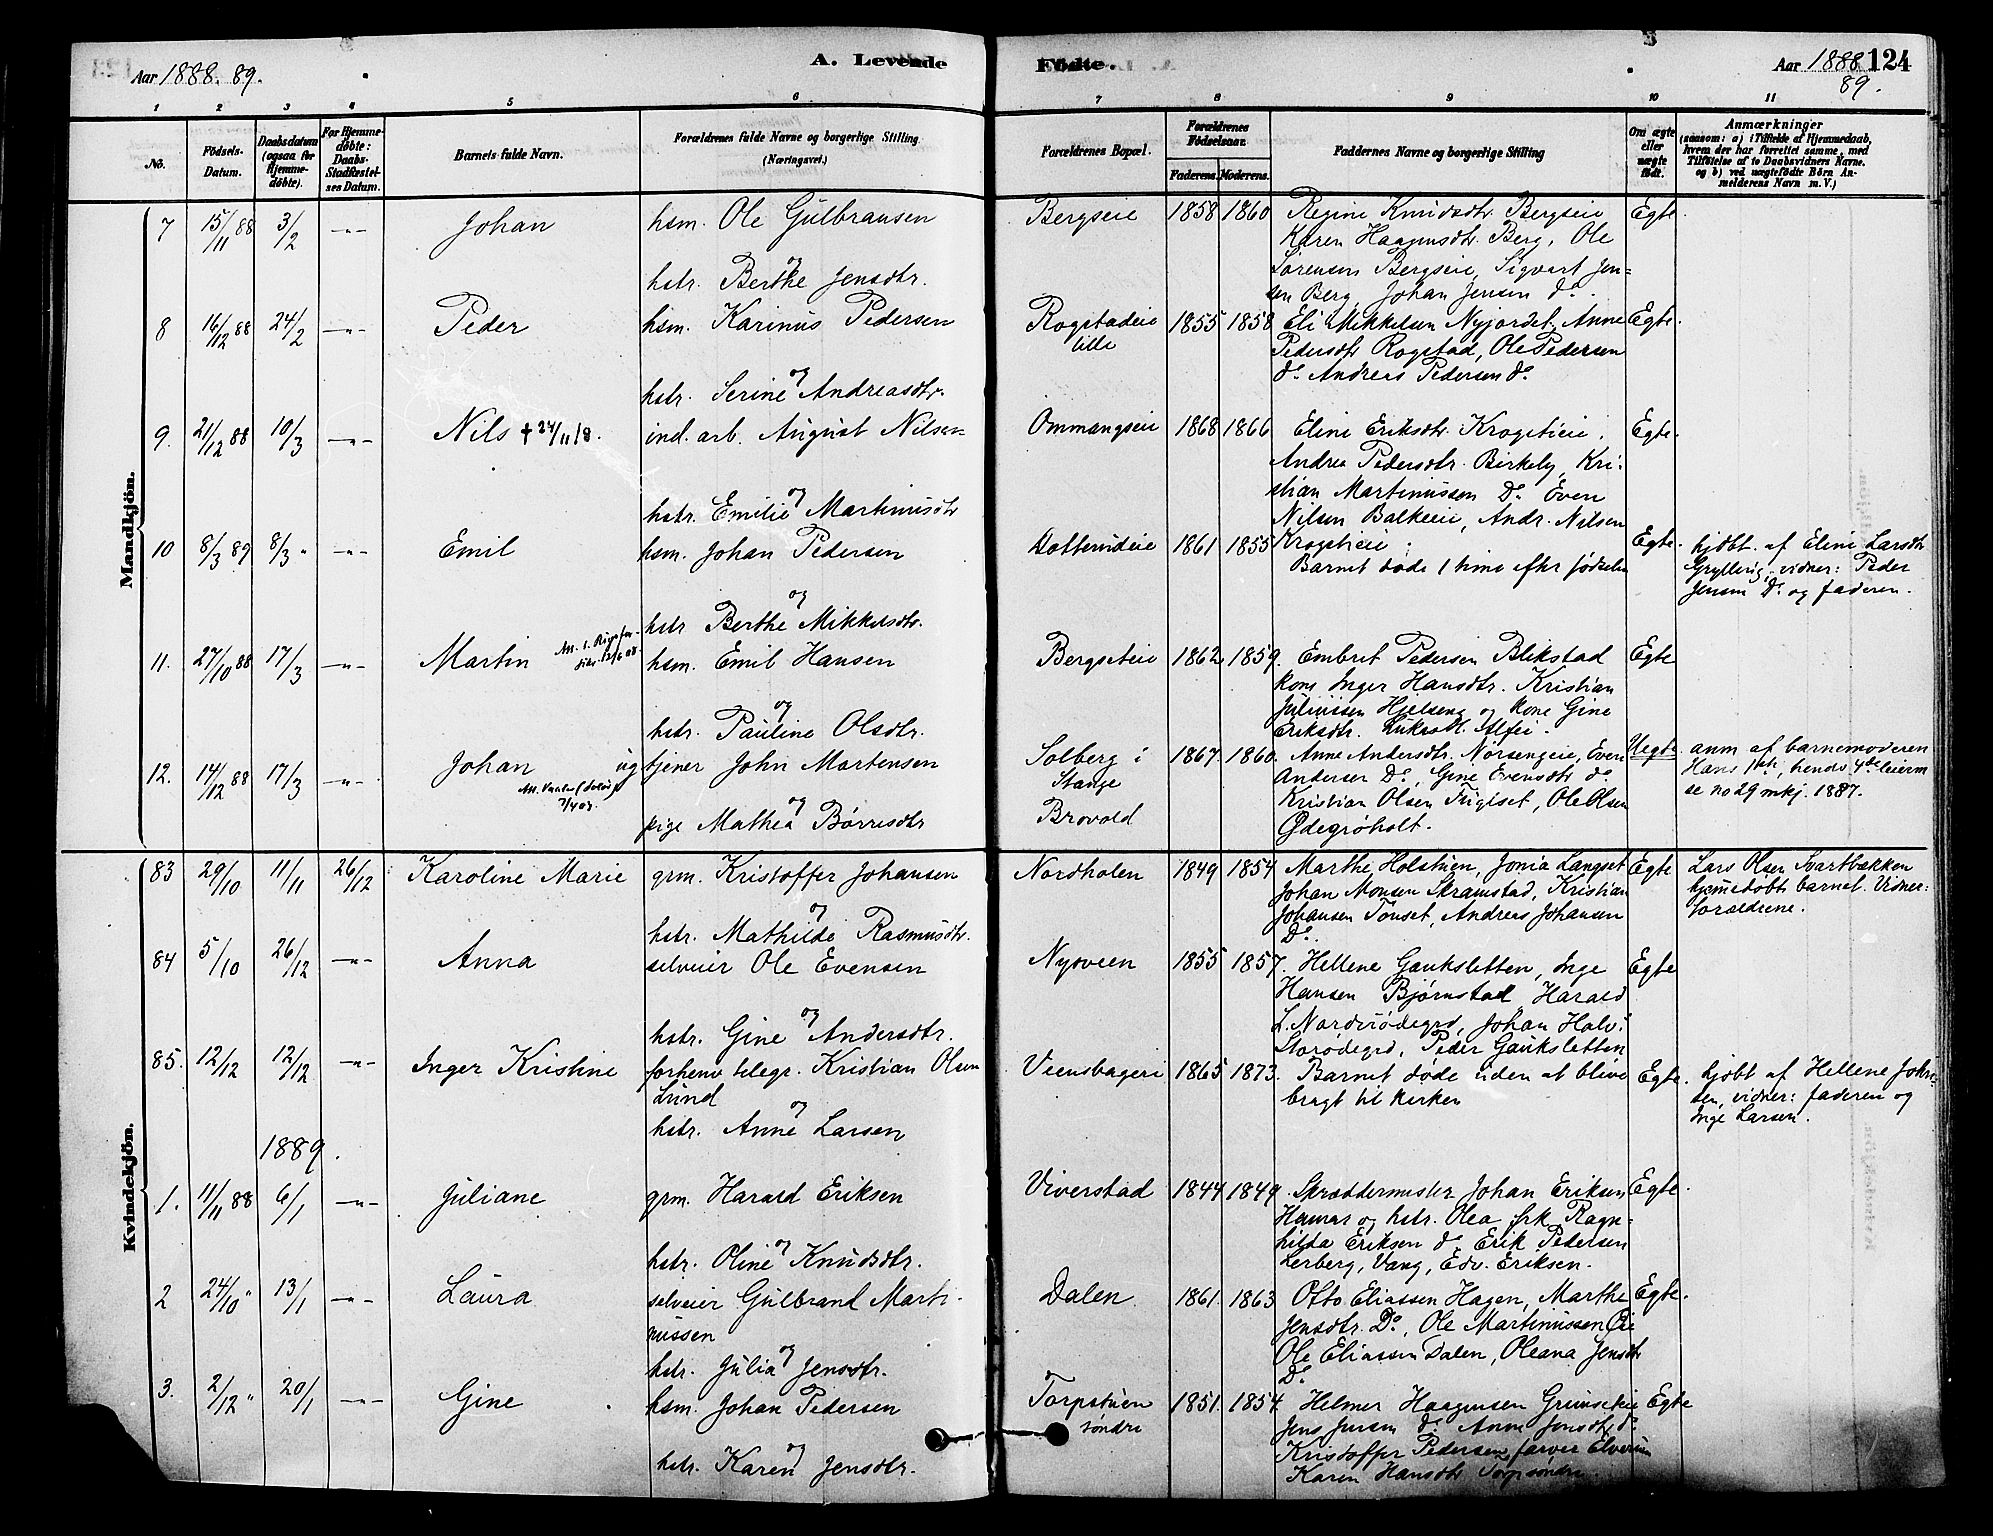 Aar 1888. 89.
A. Levende
Födte.
Aar 1888 124
89.
1 2 3 4 5 6 7 8 9 10 11
No.
Födsels-Datum.
Daabsdatum (ogsaa for Hjemme-döbte).
For Hjemme-döbte: Daabs-Stadfæstelses Datum.
Barnets fulde Navn.
Forældrenes fulde Navne og borgerlige Stilling
(Næringsvei.)
Forældrenes Bopæl.
Forældrenes Födselsaar.
Faderens. Moderens.
Faddernes Navne og borgerlige Stilling
Om ægte eller uægte födt.
Anmærkninger
(saasom: a) i Tilfælde af Hjemmedaab,
hvem der har forrettet samme, med
Tilföielse af to Daabsvidners Navne.
og b) ved uægtefödte Börn An-
melderens Navn m. V.)
Mandkjön.
7 15/11 88 3/2 -"- Johan hsm. Ole Gulbransen
og
hstr. Berthe Jensdtr.
Bergseie 1858 1860 Regine Knudsdtr. Bergseie Egte.
Karen Haagensdtr. Berg, Ole
Sørensen Bergseie, Sigvart Jen=
sen Berg, Johan Jensen do.
8 16/12 88 24/2 -"- Peder hsm. Karinus Pedersen
og
hstr. Serine Andreasdtr.
Rogstadeie lille 1855 1858 Eli Mikkelsen Nyjordet, Anne Egte.
Pedersdtr Rogstad, Ole Pedersen
do Andreas Pedersen do
9. 21/12 88 10/3 -"- Nils + 24/11 18. ind. arb. August Nilsen
og
hstr. Emilie Martinusdtr
Ommangseie 1868 1866 Eline Eriksdtr. Krogstieie, Egte.
Andrea Pedersdtr. Birkely, Kri-
stian Martinussen Do Even
Nilsen Balkeeie, Andr. Nilsen
Krogstieie.
10 8/3 89 8/3 " -"- Emil hsm. Johan Pedersen
og
hstr Berthe Mikkelsdtr.
Dotterudeie 1861 1855 Barnet døde 1 time efter fødselen Egte.
hjdbt. af Eline Larsdtr
Grylling, vidner: Peder
Jensen Do og faderen.
11. 27/10 88 17/3 -"- Martin hsm. Emil Hansen
og
hstr. Pauline Olsdtr.
Bergsteie 1862 1859. Embret Pedersen Blikstad Egte
kone Inger Hansdtr. Kristian
Juliussen Hjelseng og kone Gine
Eriksdtr.
12. 14/12 88 17/3 -"- Johan ug tjener John Martensen
7/4 03.
og
pige Mathea Børresdtr
Solberg i
Stange
Brovold
1867. 1860. Anne Andersdtr. Nørsengeie, Even Uegte
Andersen Do, Gine Evensdtr do
Kristian Olsen Frigset, Ole Olsen
Ødegrøholt.
anm af barnemoderen
Hans 1ste, hends 4de leierm
se no 29 mkj. 1887.
Kvindekjön.
83 29/10 11/11 26/12 Karoline Marie grm. Kristoffer Johansen
og
hstr. Mathilde Rasmusdtr.
Nordholen 1849 1854 Marthe Holstuen, Jonia Langset Egte
Johan Monsen Skramstad, Kristian
Johansen Tonset, Andreas Johansen
Do.
Lars Olsen Svartbækken
hjemedøbt barnet. Vidner:
forældrene.
84 5/10 26/12 -"- Anna selveier Ole Evensen
og
hstr. Gine Andersdtr.
Nysveen 1855 1857. Hellene Gauksletten, Inge Egte
Hansen Bjørnstad Harald
L. Nordrødegrd, Johan Halv:
Storødegrd, Peder Gauksletten
85. 12/12 12/12 -"- Inger Kristine forhenv telegr. Kristian Olsen
Lund
og
hstr. Anne Larsen
Veensbageri 1865 1873. Barnet døde uden at blive Egte.
bragt til kirken
hjdbt af Hellene John-
sen, vidner: faderen og
Inge Larsen.
1889.
1. 11/11 88 6/1 -"- Juliane grm. Harald Eriksen
og
hstr. Oline Knudsdtr.
Viverstad 1844 1849. Skræddermester Johan Eriksen Egte.
Hamar og hstr. Olea frk Ragn-
hilda Eriksen do Erik Pedersen
Lerberg, Vang, Edv. Eriksen.
2 24/10 " 13/1 -"- Laura selveier Gulbrand Marti-
nussen
og
hstr. Julia Jensdtr.
Dalen 1861. 1863 Otto Eliassen Hagen, Marthe Egte.
Jensdtr. Do, Ole Martinussen Øie
Ole Eliassen Dalen, Oleana Jensdtr
Do
3. 2/12 " 20/1 -"- Gine hsm. Johan Pedersen
og
hstr. Karen Jensdtr.
Torpstuen
søndre
1851. 1854 Helmer Haagensen Grimseteie Egte
Jens Jensen do Anne Jensdtr do
Kristoffer Pedersen farver Elverum
Karen Hansdtr Torp søndre.